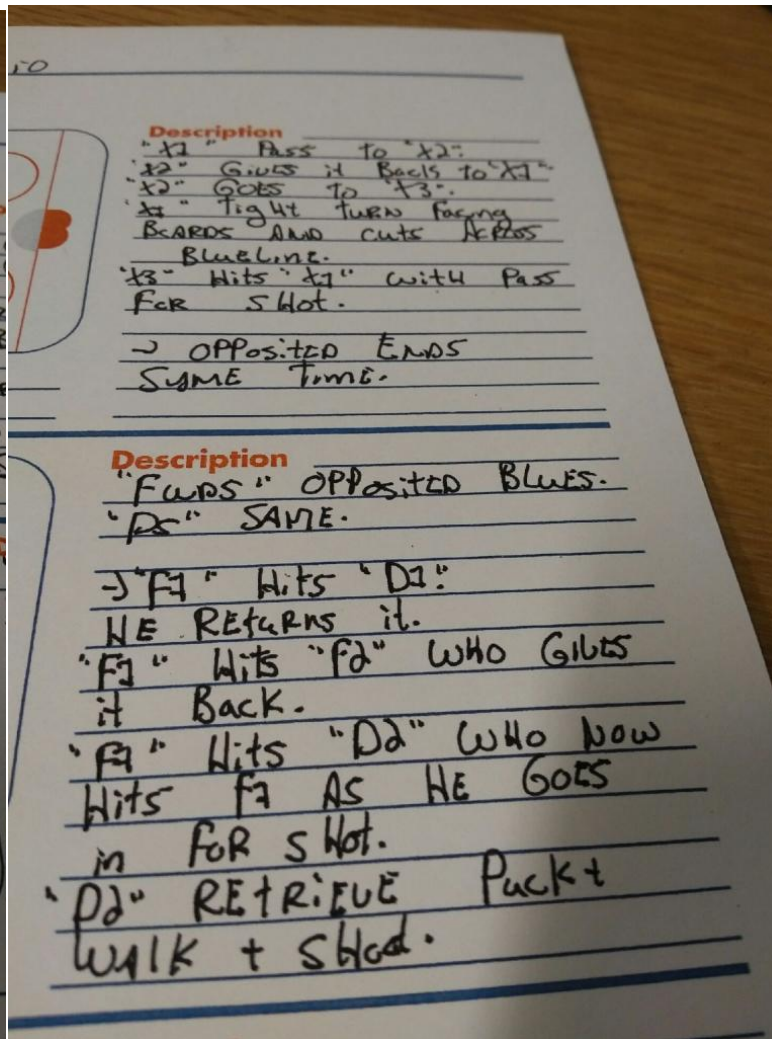 Description
"X1" Pass to "X2".
"X2" Gives it Back to "X1".
"X2" GOES to "X3".
"X1" Tight turn facing
BOARDS AND cuts ACROSS
BlueLine.
"X3" Hits "X1" with Pass
FOR sHot.
→ OPPositED ENDS
SAME Time.
Description
"FWDS" OPPositED BLUES.
"DS" SAME.
→ "F1" Hits "D1".
HE REtuRns it.
"F1" Hits "F2" WHO GIVES
it Back.
"F1" Hits "D2" WHO NOW
Hits F1 AS HE GOES
in FOR sHot.
"D2" REtRiEVE Puck +
WAlK + SHod.